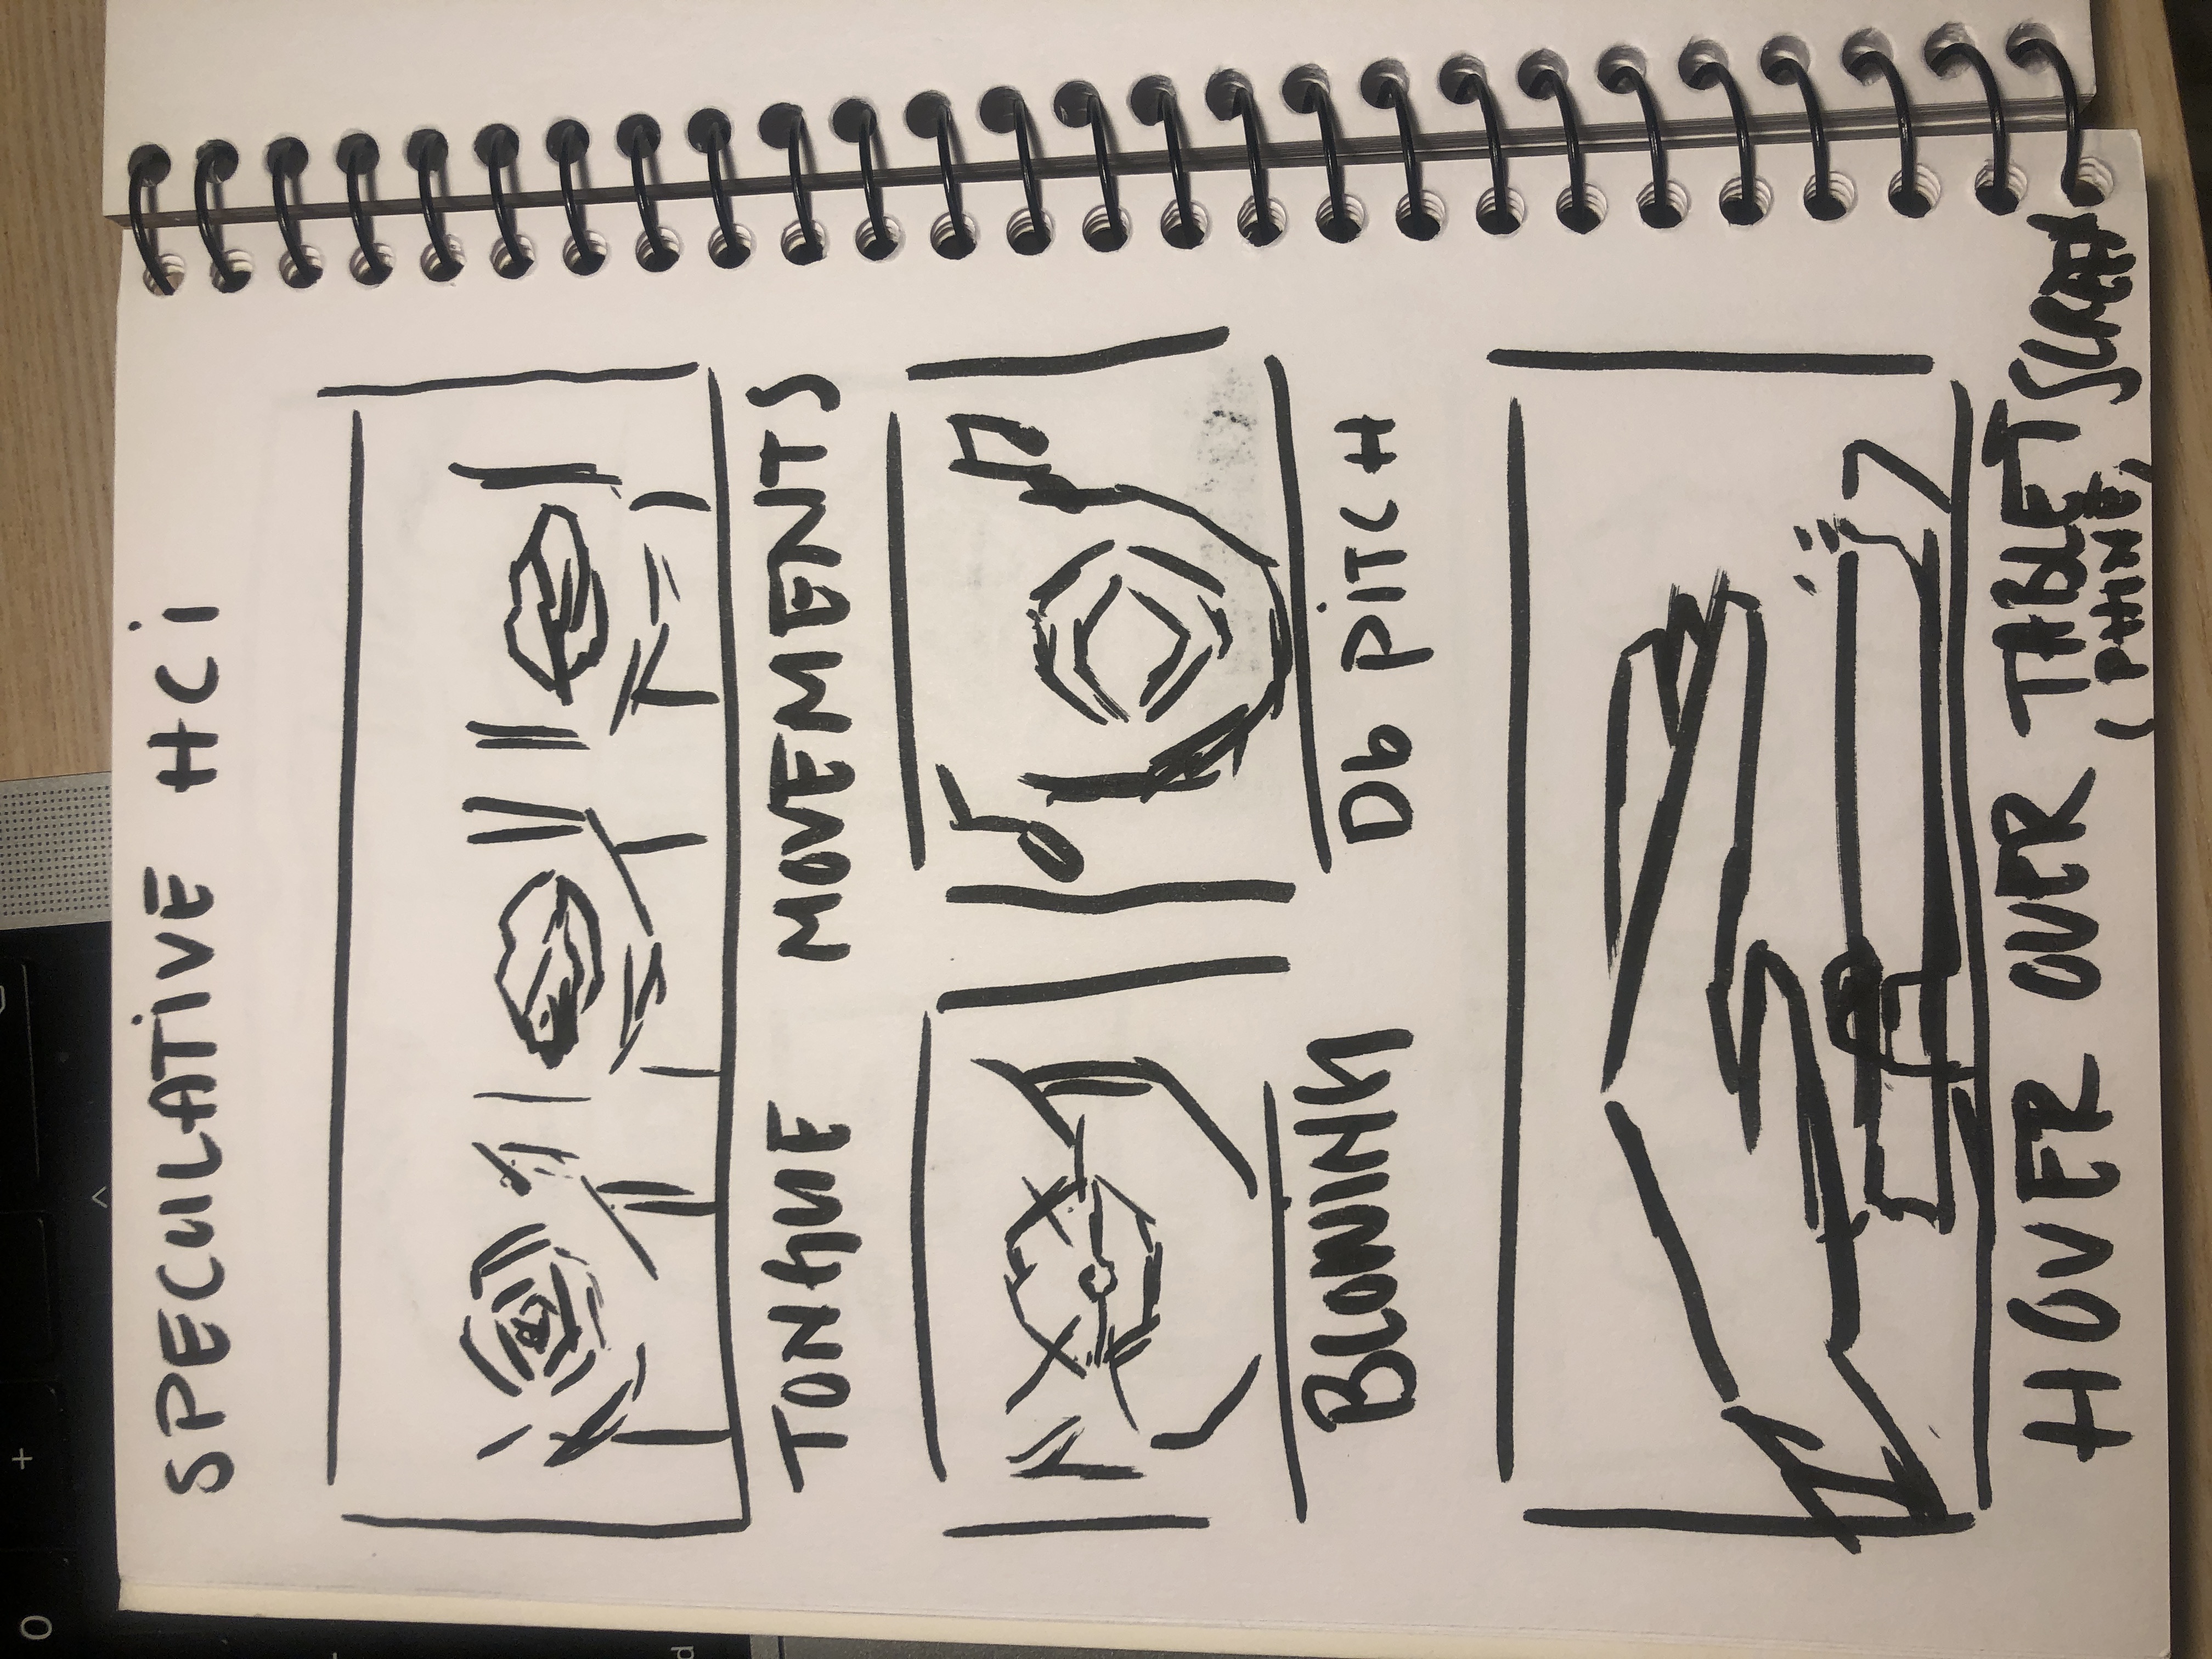 O +
^
d
SPECULATIVE HCi
TONGUE MOVEMENTS
BLOWING
Db PiTCH
HOVER OVER TABLET SCREEN
(PHONE,